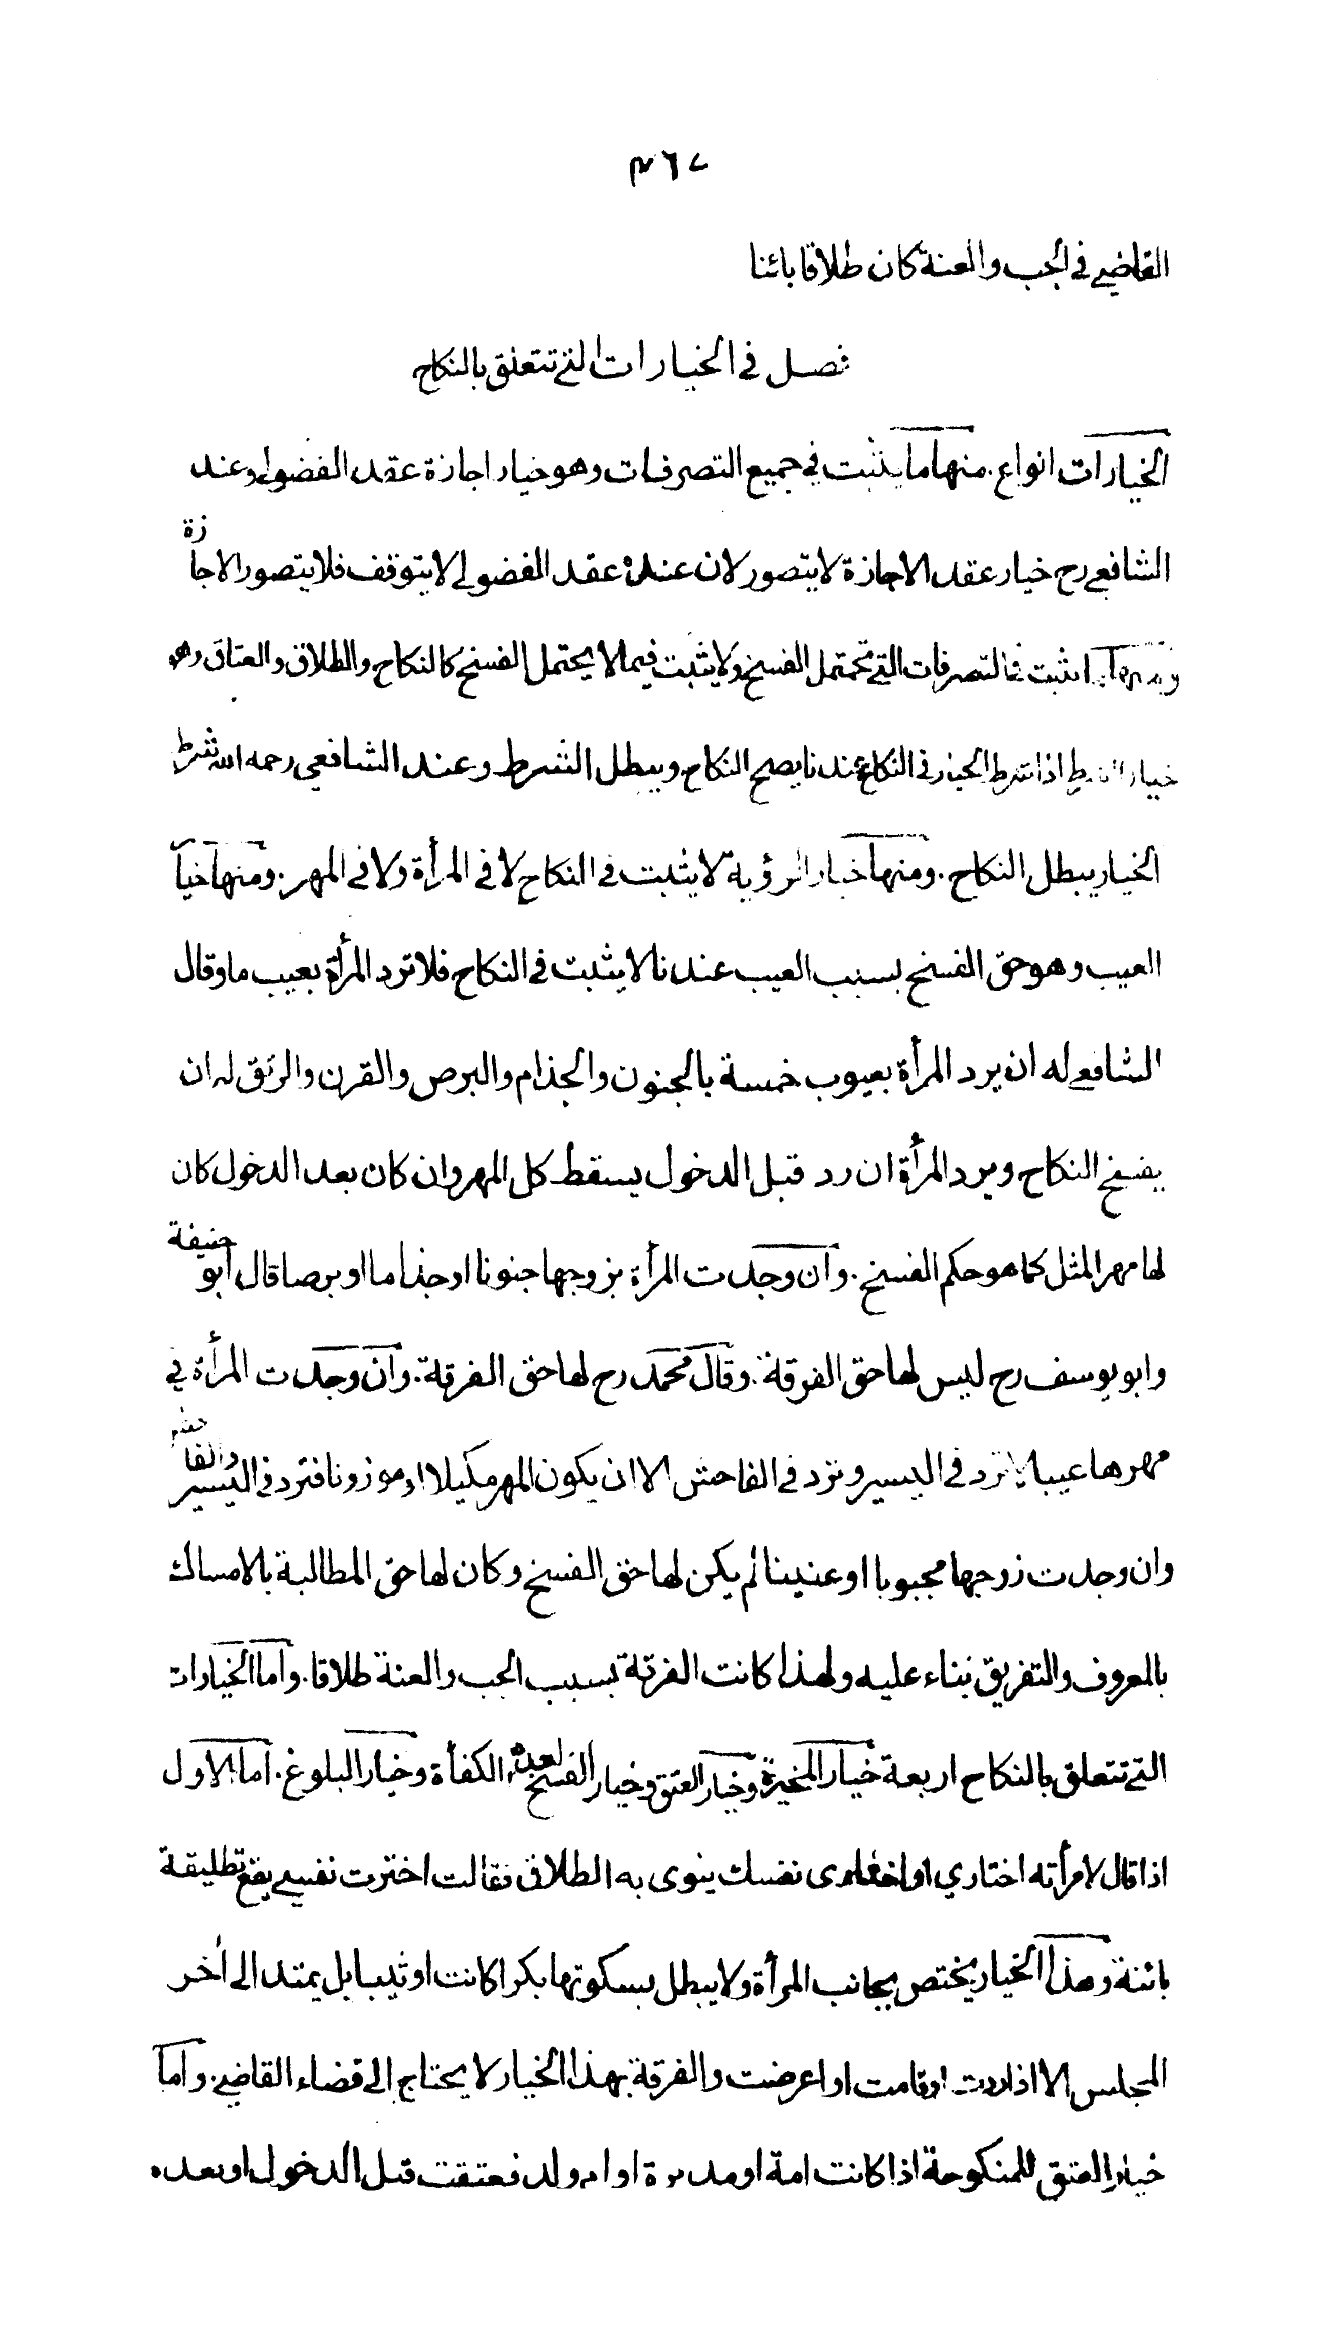 ٣٦٧
القاضي في الجب والعنة كان طلاقا بائنا
فصل في الخيارات التي تتعلق بالنكاح
الخيارات انواع . منها ما يثبت في جميع التصرفات وهو خيار اجازة عقد الفضولي وعند
الشافعي رح خيار عقد الاجازة لا يتصور لان عنده عقد الفضولي لا يتوقف فلا يتصور الاجازة
ومنها ما يثبت في التصرفات التي تحتمل الفسخ ولا يثبت فيما لا يحتمل الفسخ كالنكاح والطلاق والعتاق وهو
خيار الشرط اذا شرط الخيار في النكاح عندنا يصح النكاح ويبطل الشرط وعند الشافعي رحمه الله شرط
الخيار يبطل النكاح . ومنها خيار الرؤية لا يثبت في النكاح لا في المرأة ولا في المهر . ومنها خيا
العيب وهو حق الفسخ بسبب العيب عندنا لا يثبت في النكاح فلا ترد المرأة بعيب ما وقال
الشافعي له ان يرد المرأة بعيوب خمسة بالجنون والجذام والبرص والقرن والرتق له ان
يفسخ النكاح ويرد المرأة ان رد قبل الدخول يسقط كل المهر وان كان بعد الدخول كان
لها مهر المثل كما هو حكم الفسخ . وان وجدت المرأة بزوجها جنونا او جذاما او برصا قال أبو حنيفة
وابو يوسف رح ليس لها حق الفرقة . وقال محمد رح لها حق الفرقة . وان وجدت المرأة في
مهرها عيبا لا ترد في اليسير وترد في الفاحش الا ان يكون المهر مكيلا او موزونا فترد في اليسير والفاحش
وان وجدت زوجها مجبوبا او عنينا لم يكن لها حق الفسخ وكان لها حق المطالبة بالامساك
بالمعروف والتفريق بناء عليه ولهذا كانت الفرقة بسبب الجب والعنة طلاقا . واما الخيارات
التي تتعلق بالنكاح اربعة خيار المخيرة وخيار العتق وخيار الفسخ لعدم الكفأة وخيار البلوغ . اما الاول
اذا قال لامرأته اختاري او اختاري نفسك ينوى به الطلاق فقالت اخترت نفسي يقع تطليقة
بائنة وهذا الخيار يختص بجانب المرأة ولا يبطل بسكوتها بكرا كانت او ثيبا بل يمتد الى أخر
المجلس الا اذا ردت او قامت او اعرضت والفرقة بهذا الخيار لا يحتاج الى قضاء القاضي . واما
خيار العتق للمنكوحة اذا كانت امة او مدبرة او ام ولد فعتقت قبل الدخول او بعده